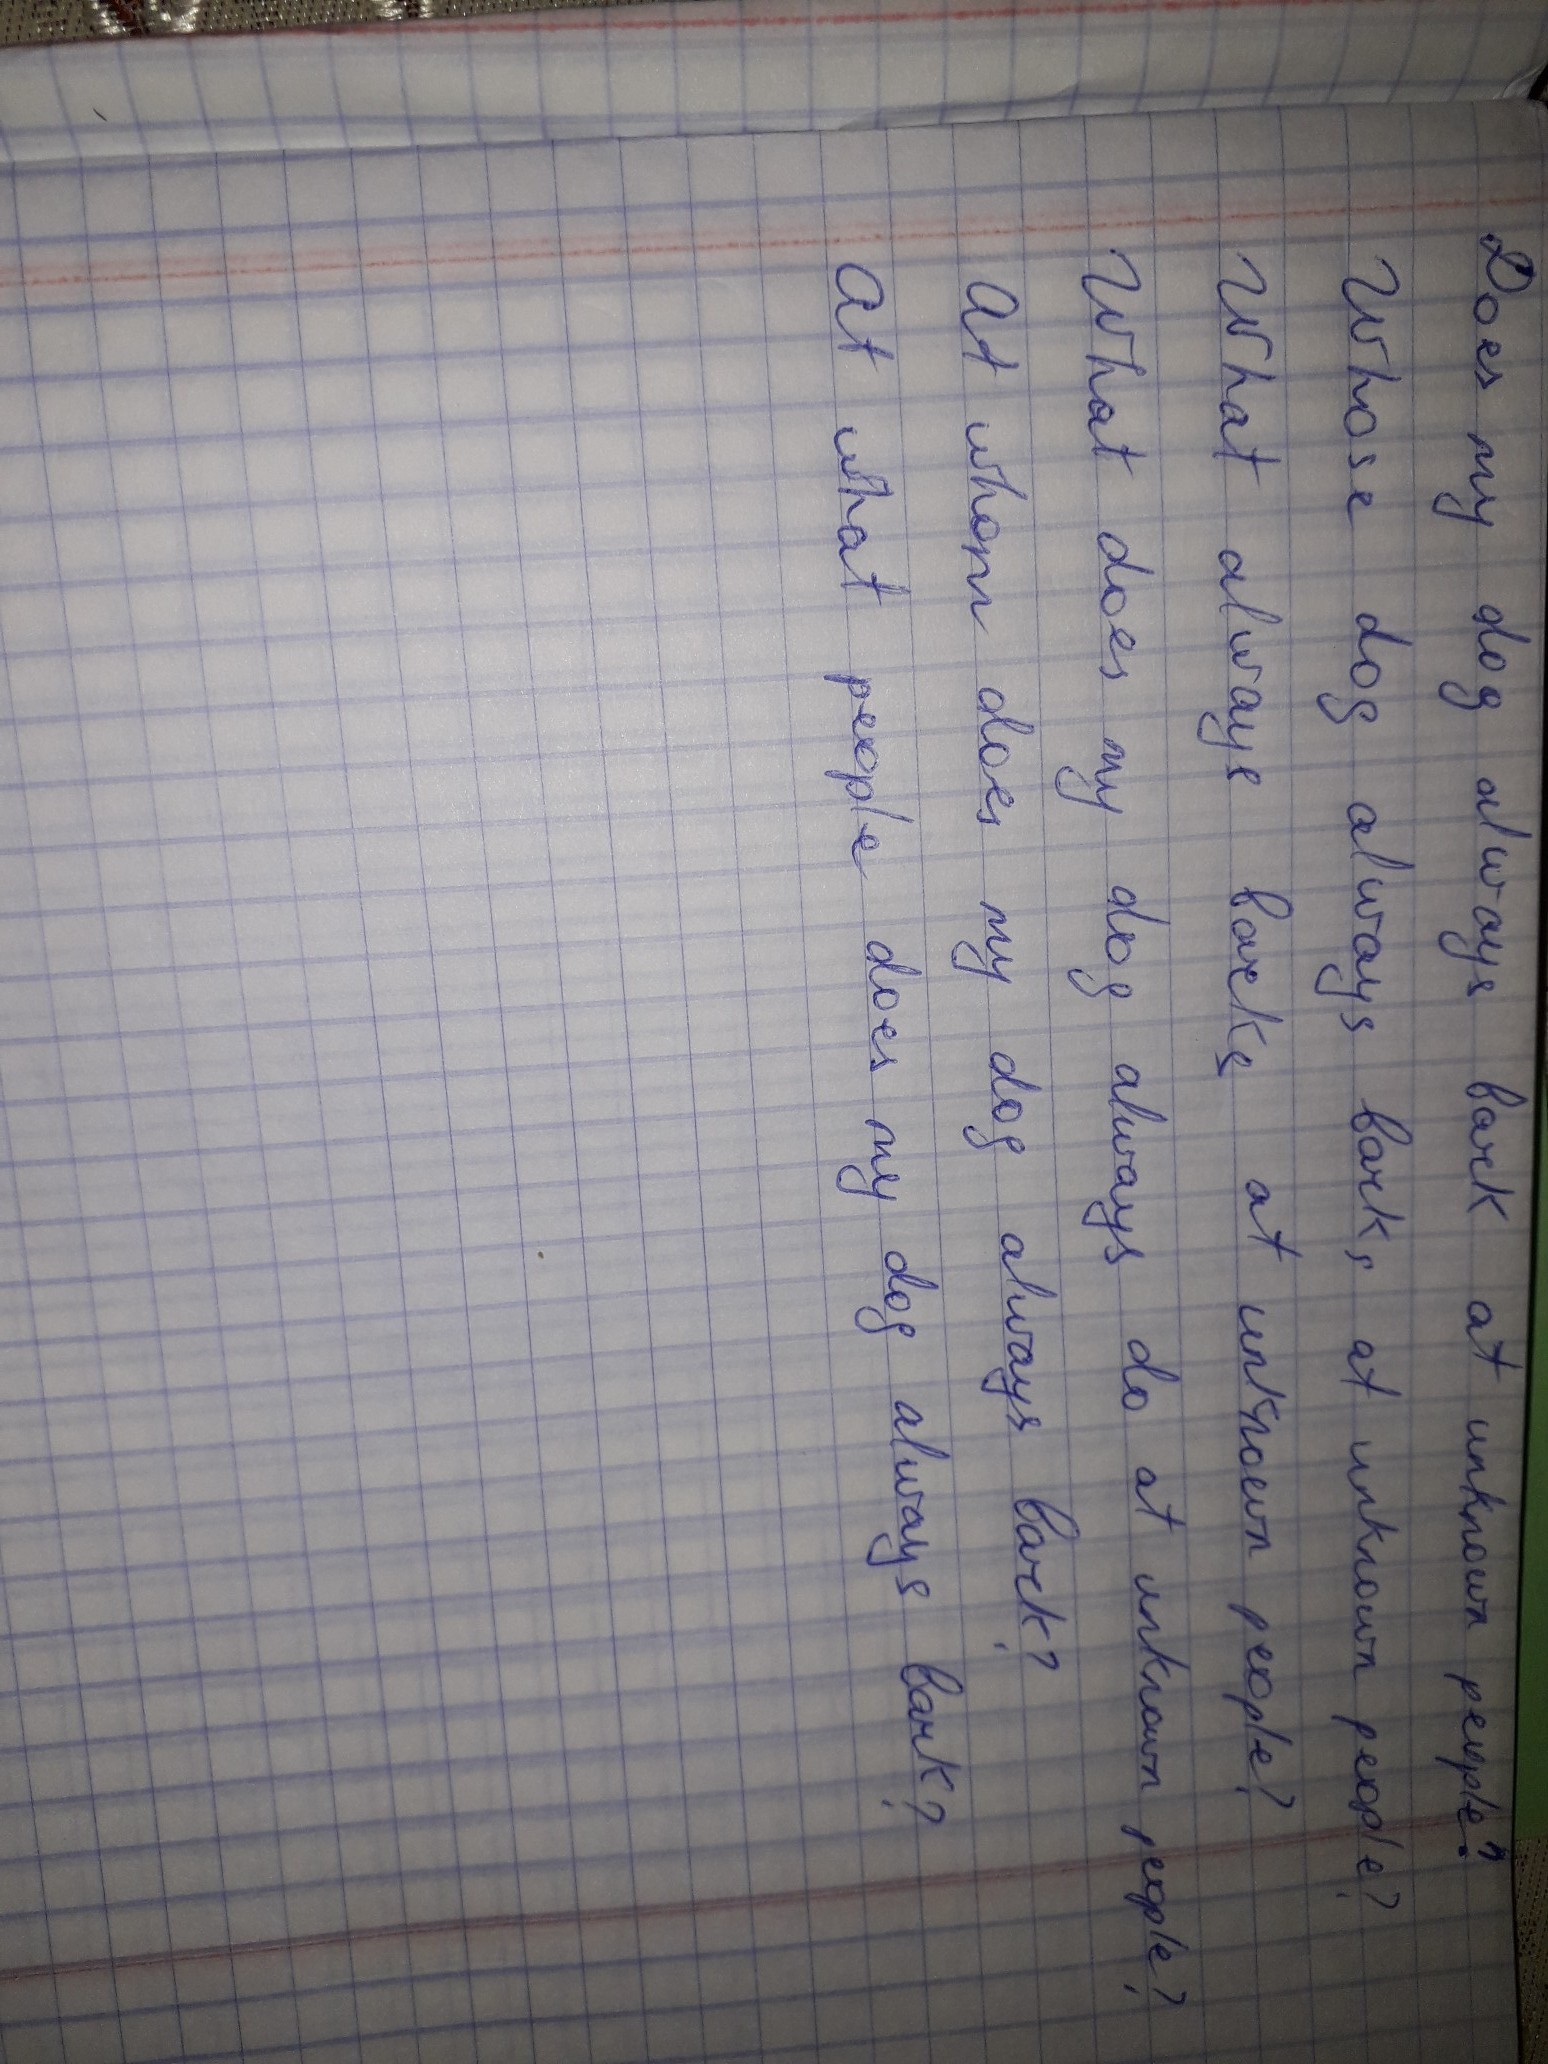 Does my dog always bark at unknown people?
Whose dog always barks at unknown people?
What always barks at unknown people?
What does my dog always do at unknown people?
At whom does my dog always bark?
At what people does my dog always bark?